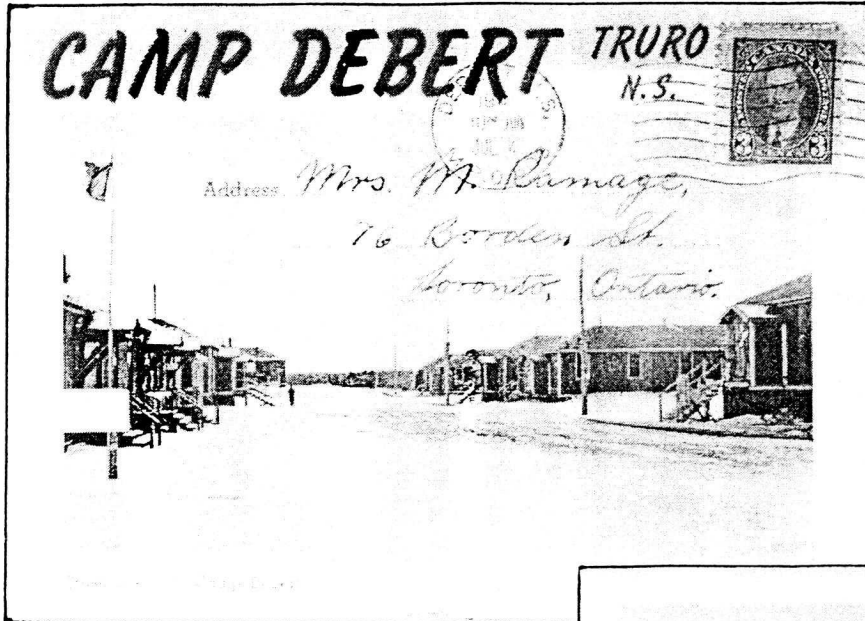 CAMP DEBERT TRURO
N.S.
CANADA
3 3
JUL
Address Mrs. M. Ramage,
76 Borden St.
Toronto, Ontario.